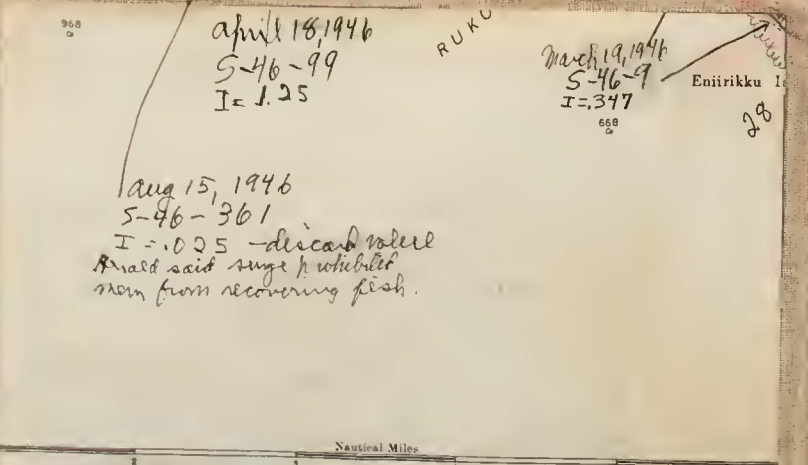 968
Co
April 18, 1946
S-46-99
I = 1.25
RUKU
March 19, 1946
S-46-9
I = .347
668
Co
Eniirikku I
28
Aug 15, 1946
S-46-361
I = .025 - discard
said surge prohibited
men from recovering fish.
Nautical Miles